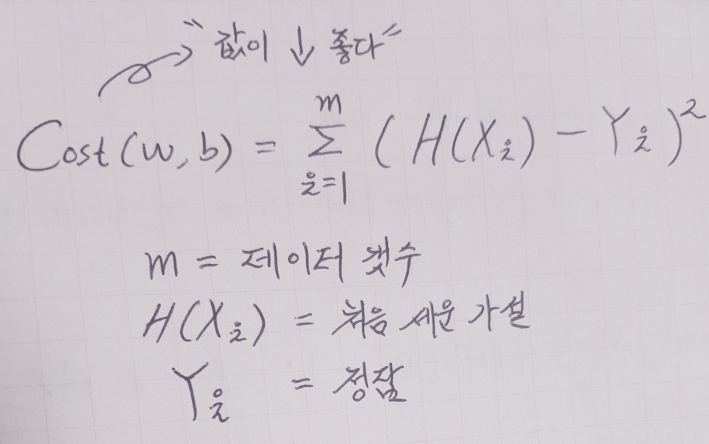 "값이 ↓ 좋다"
Cost(W, b) = \sum_{i=1}^{m} (H(X_i) - Y_i)^2
m = 데이터 갯수
H(X_i) = 처음 세운 가설
Y_i = 정답